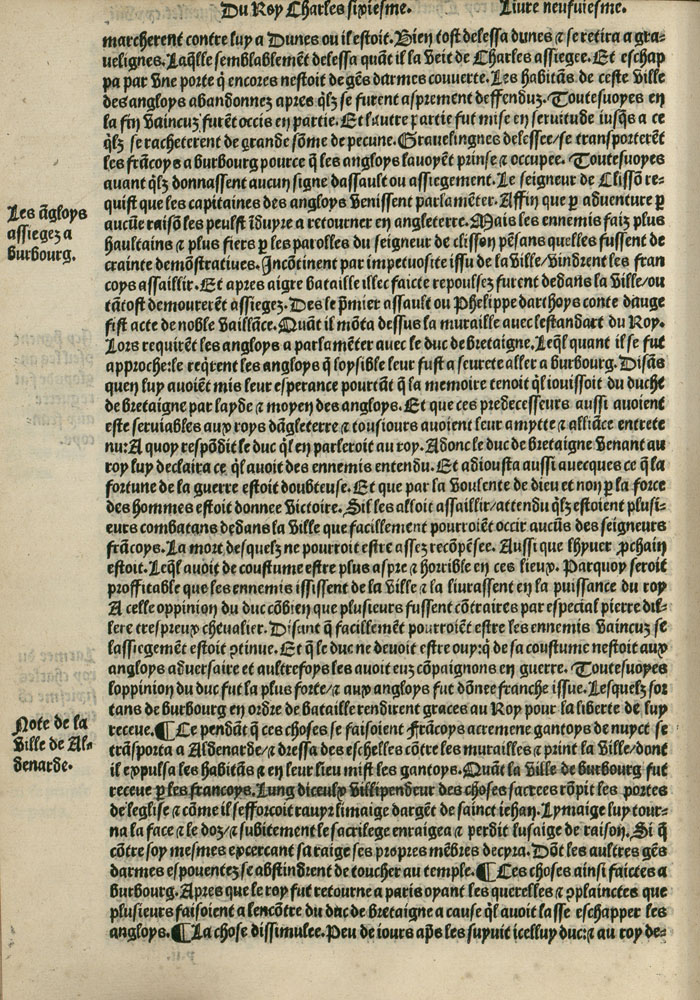 Du Roy Charles sixiesme. Liure neufuiesme.
marcherent contre luy a Dunes ou il estoit. Bien tost delessa dunes ⁊ se retira a gra-
uelignes. Laq̃lle semblablemẽt delessa quãt il la veit de Charles assiegee. Et eschap
pa par vne porte q̃ encores nestoit de gẽs darmes couuerte. Les habitãs de ceste ville
des angloys abandonnez apres q̃lz se furent asprement deffenduz. Toutesuoyes en
la fin vaincuz furẽt occis en partie. Et lautre partie fut mise en seruitude iusq̃s a ce
q̃lz se racheterent de grande sõme de pecune. Grauelingnes delessee/se transporterẽt
les frãcoys a burbourg pource q̃ les angloys lauoyẽt prinse ⁊ occupee. Toutesuoyes
auant q̃lz donnassent aucun signe dassault ou assiegement. Le seigneur de Clissõ re-
quist que les capitaines des angloys venissent parlamẽter. Affin que ꝑ aduenture ꝑ
aucũe raisõ les peulst ĩduyre a retourner en angleterre. Mais les ennemis faiz plus
haultains ⁊ plus fiers ꝑ les parolles du seigneur de clisson pẽsans quelles fussent de
crainte demõstratiues. Incõtinent par impetuosite issu de la ville/vindrent les fran
coys assaillir. Et apres aigre bataille illec faicte repoulsez furent dedans la ville/ou
tãtost demourerẽt assiegez. Des le p̃mier assault ou Phelippe darthoys conte dauge
fist acte de noble vaillãce. Quãt il mõta dessus la muraille auec lestandart du Roy.
Lors requirẽt les angloys a parlamẽter auec le duc de bretaigne. Leq̃l quant il se fut
approche:le req̃rent les angloys q̃ loysible leur fust a seurete aller a burbourg. Disãs
quen luy auoiẽt mis leur esperance pourtãt q̃ la memoire tenoit q̃l iouissoit du duche
de bretaigne par layde ⁊ moyen des angloys. Et que ces predecesseurs aussi auoient
este seruiables aux roys dãgleterre ⁊ tousiours auoient leur amytte ⁊ alliãce entrete
nu:A quoy respõdit le duc q̃l en parleroit au roy. Adonc le duc de bretaigne venant au
roy luy declaira ce q̃l auoit des ennemis entendu. Et adiousta aussi auecques ce q̃ la
fortune de la guerre estoit doubteuse. Et que par la voulente de dieu et non ꝑ la force
des hommes estoit donnee victoire. Sil les alloit assaillir/attendu q̃lz estoient plusi-
eurs combatans dedans la ville que facillement pourroiẽt occir aucũs des seigneurs
frãcoys. La mort desquelz ne pourroit estre assez recõpẽsee. Aussi que lhyuer ꝓchain
estoit. Leq̃l auoit de coustume estre plus aspre ⁊ horrible en ces lieux. Parquoy seroit
proffitable que les ennemis ississent de la ville ⁊ la liurassent en la puissance du roy
A celle oppinion du duc cõbien que plusieurs fussent cõtraires par especial pierre dil-
lere trespreux cheualier. Disant q̃ facillemẽt pourroiẽt estre les ennemis vaincuz se
lassiegement estoit ꝯtinue. Et q̃ le duc ne deuoit estre ouy:q̃ de sa coustume nestoit aux
angloys aduersaire et aultrefoys les auoit euz cõpaignons en guerre. Toutesuoyes
loppinion du duc fut la plus forte/⁊ aux angloys fut dõnee franche issue. Lesquelz sor
tans de burbourg en ordre de bataille rendirent graces au Roy pour la liberte de luy
receue. ¶ Ce pendãt q̃ ces choses se faisoient Frãcoys acremene gantoys de nuyct se
trãsporta a Aldenarde/⁊ dressa des eschelles cõtre les murailles ⁊ print la ville/dont
il expulsa les habitãs ⁊ en leur lieu mist les gantoys. Quãt la ville de burbourg fut
receue ꝑ les francoys. Lung diceulx villipendeur des choses sacrees rõpit les portes
de leglise ⁊ cõme il sefforcoit rauyr limaige dargẽt de sainct iehan. Lymaige luy tour-
na la face ⁊ le doz/⁊ subitement le sacrilege enraigea ⁊ perdit lusaige de raison. Si q̃
cõtre soy mesmes excercant sa raige ses propres mẽbres decyra. Dõt les aultres gẽs
darmes espouentez se abstindrent de toucher au temple. ¶ Ces choses ainsi faictes a
burbourg. Apres que le roy fut retourne a paris oyant les querelles ⁊ ꝯplainctes que
plusieurs faisoient a lencõtre du duc de bretaigne a cause q̃l auoit lasse eschapper les
angloys. ¶ La chose dissimulee. Peu de iours ap̃s les suyuit icelluy duc:⁊ au roy de-
Les ãgloys
assiegez a
burbourg.
Note de la
ville de Al-
denarde.